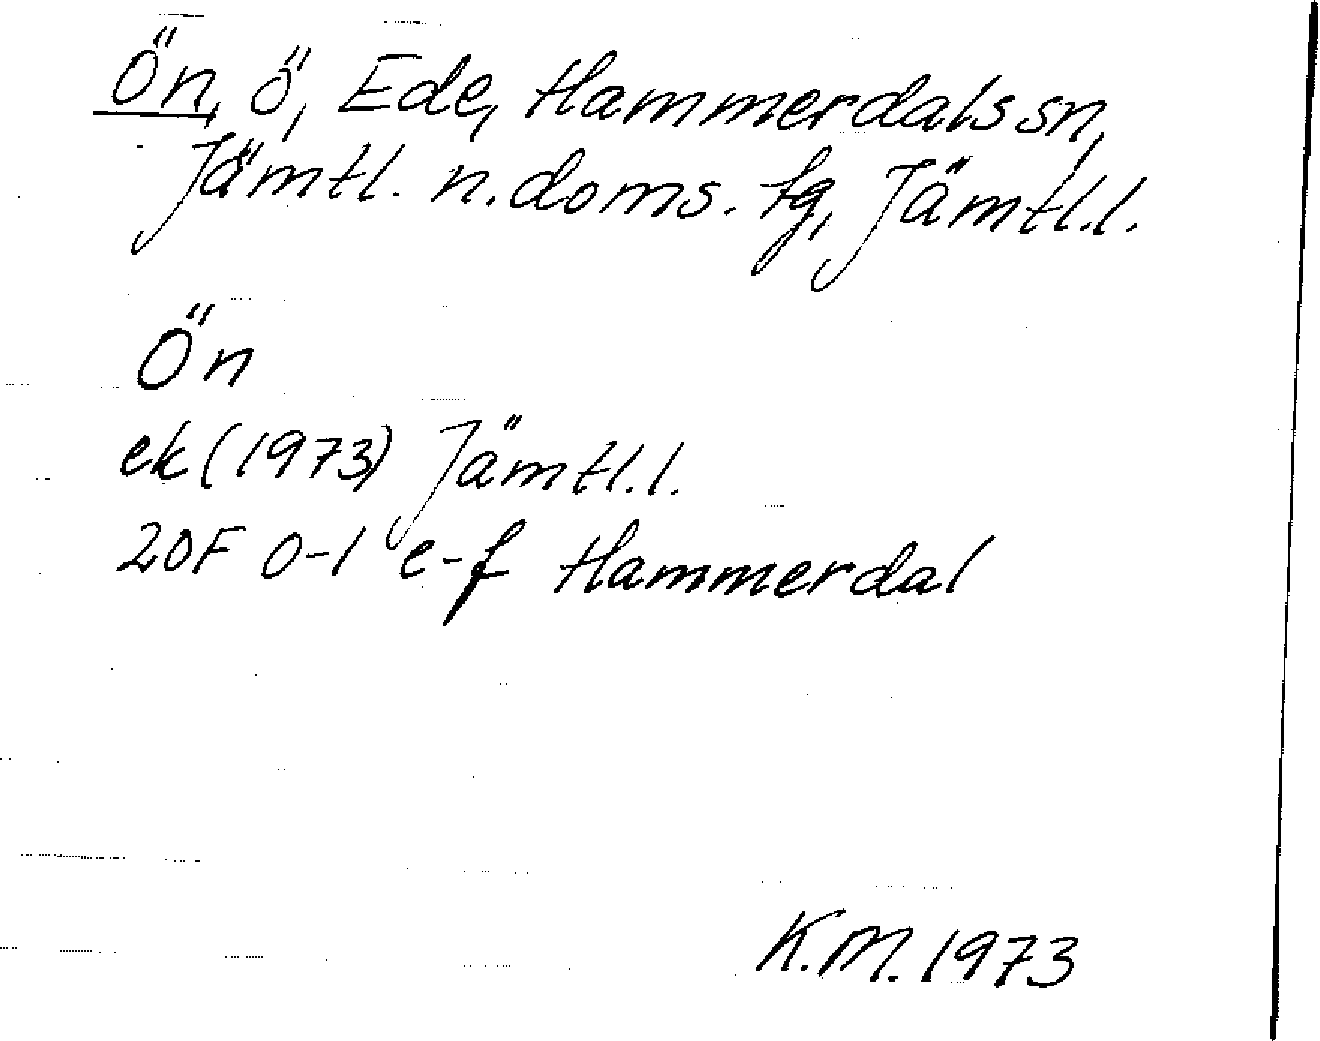 Ön, ö, Ede, Hammerdals sn,
Jämtl. n. doms. tg, Jämtl. l.
Ön
ek (1973) Jämtl. l.
20F 0-1 e-f Hammerdal
K.M. 1973